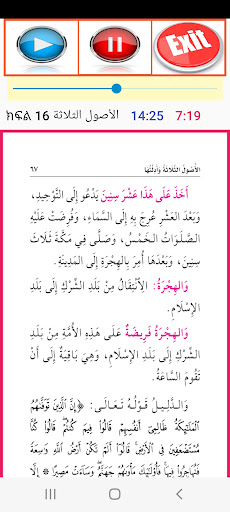 Exit
ክፍል 16 الأصول الثلاثة 14:25 7:19
الأُصُولُ الثَّلَاثَةُ وَأَدِلَّتُهَا ٦٧
أَخَذَ عَلَى هَذَا عَشْرَ سِنِينَ يَدْعُو إِلَى التَّوْحِيدِ،
وَبَعْدَ العَشْرِ عُرِجَ بِهِ إِلَى السَّمَاءِ، وَفُرِضَتْ عَلَيْهِ
الصَّلَوَاتُ الخَمْسُ، وَصَلَّى فِي مَكَّةَ ثَلَاثَ
سِنِينَ، وَبَعْدَهَا أُمِرَ بِالهِجْرَةِ إِلَى المَدِينَةِ.
وَالهِجْرَةُ: الِانْتِقَالُ مِنْ بَلَدِ الشِّرْكِ إِلَى بَلَدِ
الإِسْلَامِ.
وَالهِجْرَةُ فَرِيضَةٌ عَلَى هَذِهِ الأُمَّةِ مِنْ بَلَدِ
الشِّرْكِ إِلَى بَلَدِ الإِسْلَامِ، وَهِيَ بَاقِيَةٌ إِلَى أَنْ
تَقُومَ السَّاعَةُ.
وَالدَّلِيلُ قَوْلُهُ تَعَالَى: ﴿إِنَّ الَّذِينَ تَوَفَّاهُمُ
الْمَلَائِكَةُ ظَالِمِي أَنْفُسِهِمْ قَالُوا فِيمَ كُنْتُمْ قَالُوا كُنَّا
مُسْتَضْعَفِينَ فِي الْأَرْضِ قَالُوا أَلَمْ تَكُنْ أَرْضُ اللَّهِ وَاسِعَةً
فَتُهَاجِرُوا فِيهَا فَأُولَئِكَ مَأْوَاهُمْ جَهَنَّمُ وَسَاءَتْ مَصِيرًا * إِلَّا